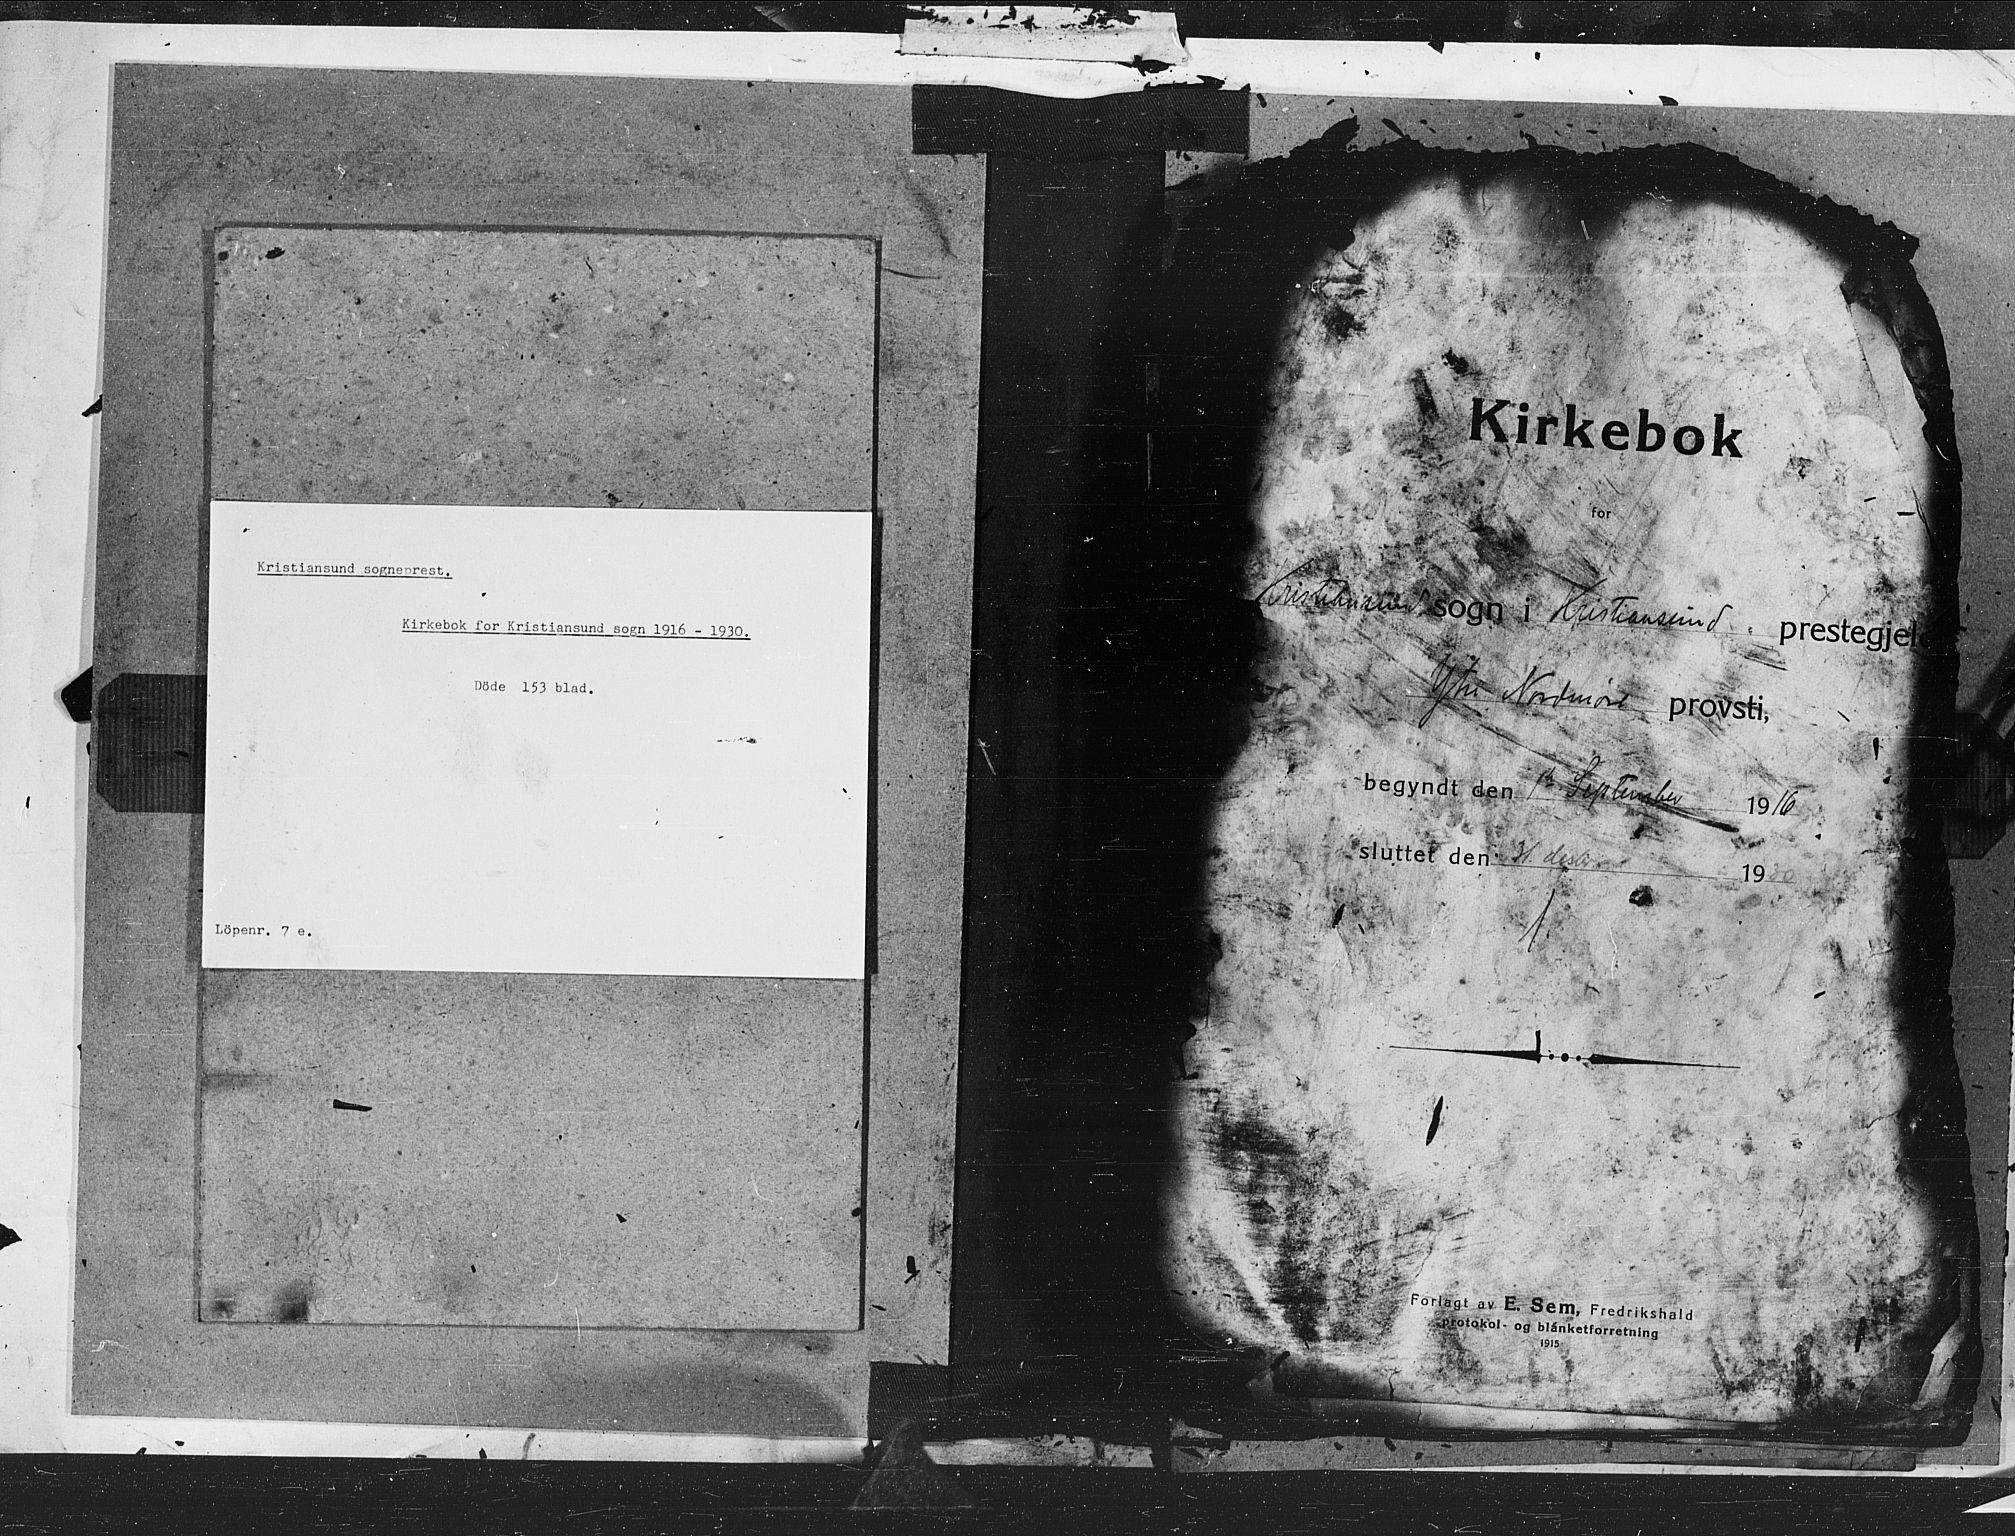 Kristiansund sogneprest.
Kirkebok for Kristiansund sogn 1916 - 1930.
Döde 153 blad.
Löpenr. 7 e.
Kirkebok
for
Kristiansund sogn i Kristiansund prestegjeld
Ytre Nordmöre provsti,
begyndt den 1ste September 1916
sluttet den 31. desbr 1930
Forlagt av E. Sem, Fredrikshald
protokol- og blanketforretning
1915